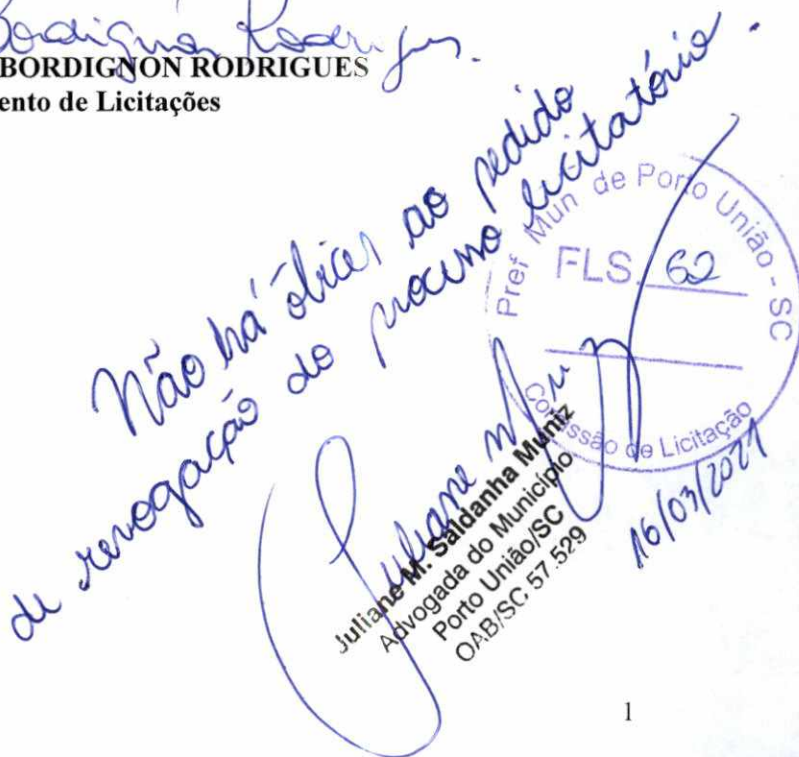 Bordignon Rodrigues.
BORDIGNON RODRIGUES
ento de Licitações
Não há óbices ao pedido
de revogação do processo licitatório.
Pref Mun de Porto União - SC
FLS. 62
Comissão de Licitação
Juliane M
Juliane M. Saldanha Muniz
Advogada do Município
Porto União/SC
OAB/SC 57.529
16/03/2021
1